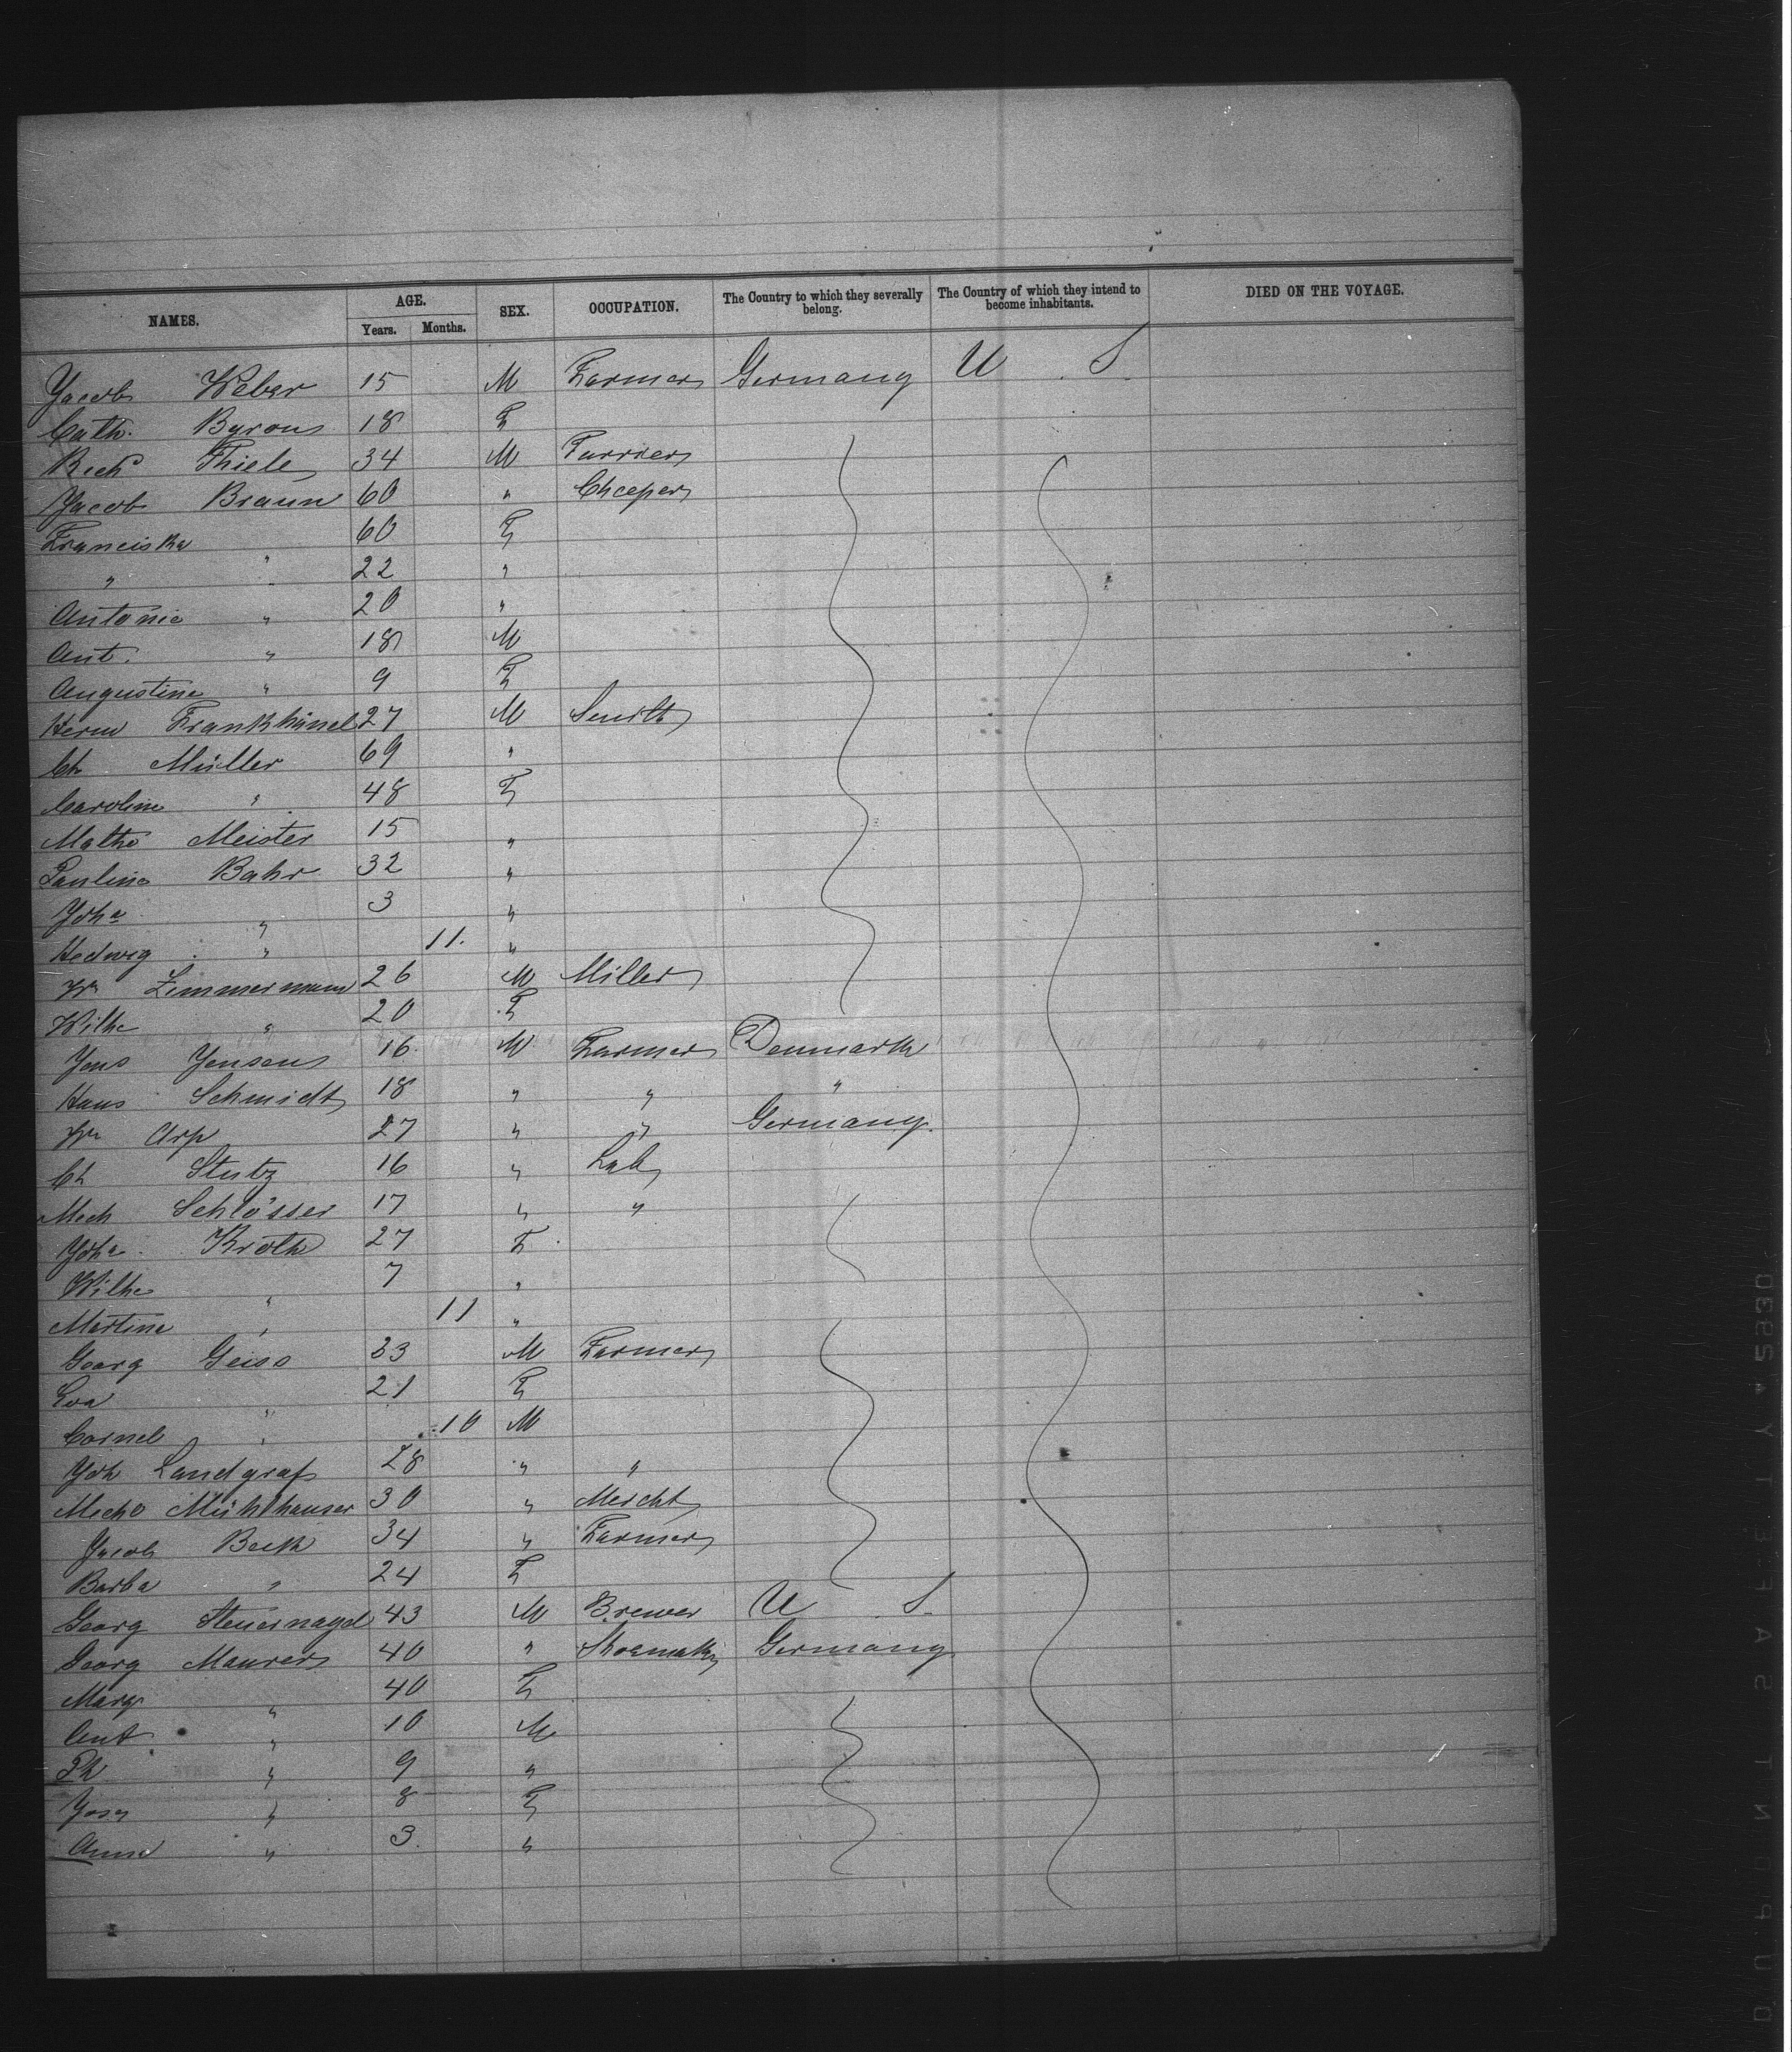 NAMES. AGE. Years. Months. SEX. OCCUPATION. The Country to which they severally belong. The Country of which they intend to become inhabitants. DIED ON THE VOYAGE.
Jacob Weber 15 M Farmer Germany U S
Cath. Byrons 18 F
Rich Thiele 34 M Furrier
Jacob Braun 60 "
Franciska " 60 F
" " 22 "
Antonie " 20 "
Ant. " 18 M
Augustine " 9 F
Herm Frankhänel 27 M Smith
Ch Müller 69 "
Caroline " 48 F
Mathe Meister 15 "
Pauline Bahr 32 "
Joha " 3 "
Hedwig " 11. "
Wm Zimmermann 26 M Miller
Wilhe " 20 F
Jens Jensen 16 M Farmer Denmark
Hans Schmidt 18 " " "
Wm Arp 27 " " Germany
Ch Stutz 16 " Lab
Mich Schlösser 17 " "
Joha Kroth 27 F
Wilhe " 7 "
Martina " 11 "
Georg Geiss 33 M Farmer
Eva " 21 F
Cornel " 10 M
Joh Landgraf 28 " "
Mich Mühlhauser 30 " Mercht
Jacob Beck 34 " Farmer
Barba " 24 F
Georg Steuernagel 43 M Brewer U S
Georg Maurer 40 " Shoemak Germany
Marg " 40 F
Ant " 10 M
Ph " 9 "
Josa " 8 F
Anna " 3. "
DUPONT SAFETY